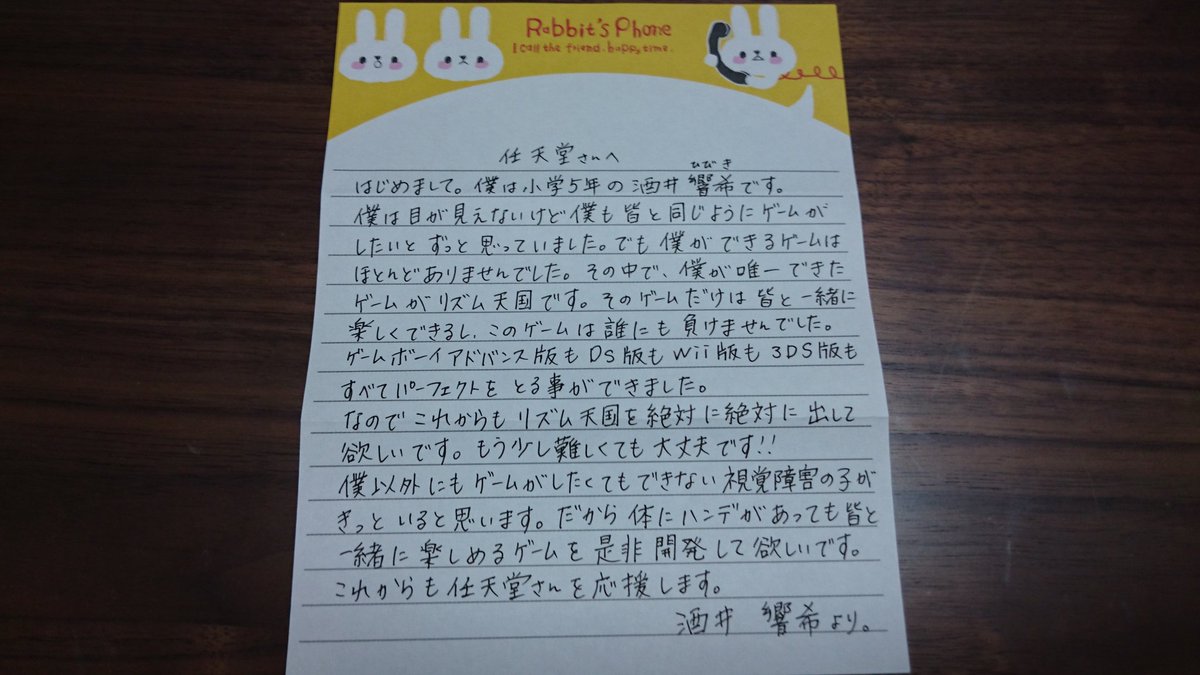 Rabbit's Phone
I call the friend. happy time.
任天堂さんへ
ひびき
はじめまして。僕は小学5年の酒井響希です。
僕は目が見えないけど僕も皆と同じようにゲームが
したいとずっと思っていました。でも僕ができるゲームは
ほとんどありませんでした。その中で、僕が唯一できた
ゲームがリズム天国です。そのゲームだけは皆と一緒に
楽しくできるし、このゲームは誰にも負けませんでした。
ゲームボーイアドバンス版もDS版もWii版も3DS版も
すべてパーフェクトをとる事ができました。
なのでこれからもリズム天国を絶対に絶対に出して
欲しいです。もう少し難しくても大丈夫です!!
僕以外にもゲームがしたくてもできない視覚障害の子が
きっといると思います。だから体にハンデがあっても皆と
一緒に楽しめるゲームを是非開発して欲しいです。
これからも任天堂さんを応援します。
酒井 響希より。